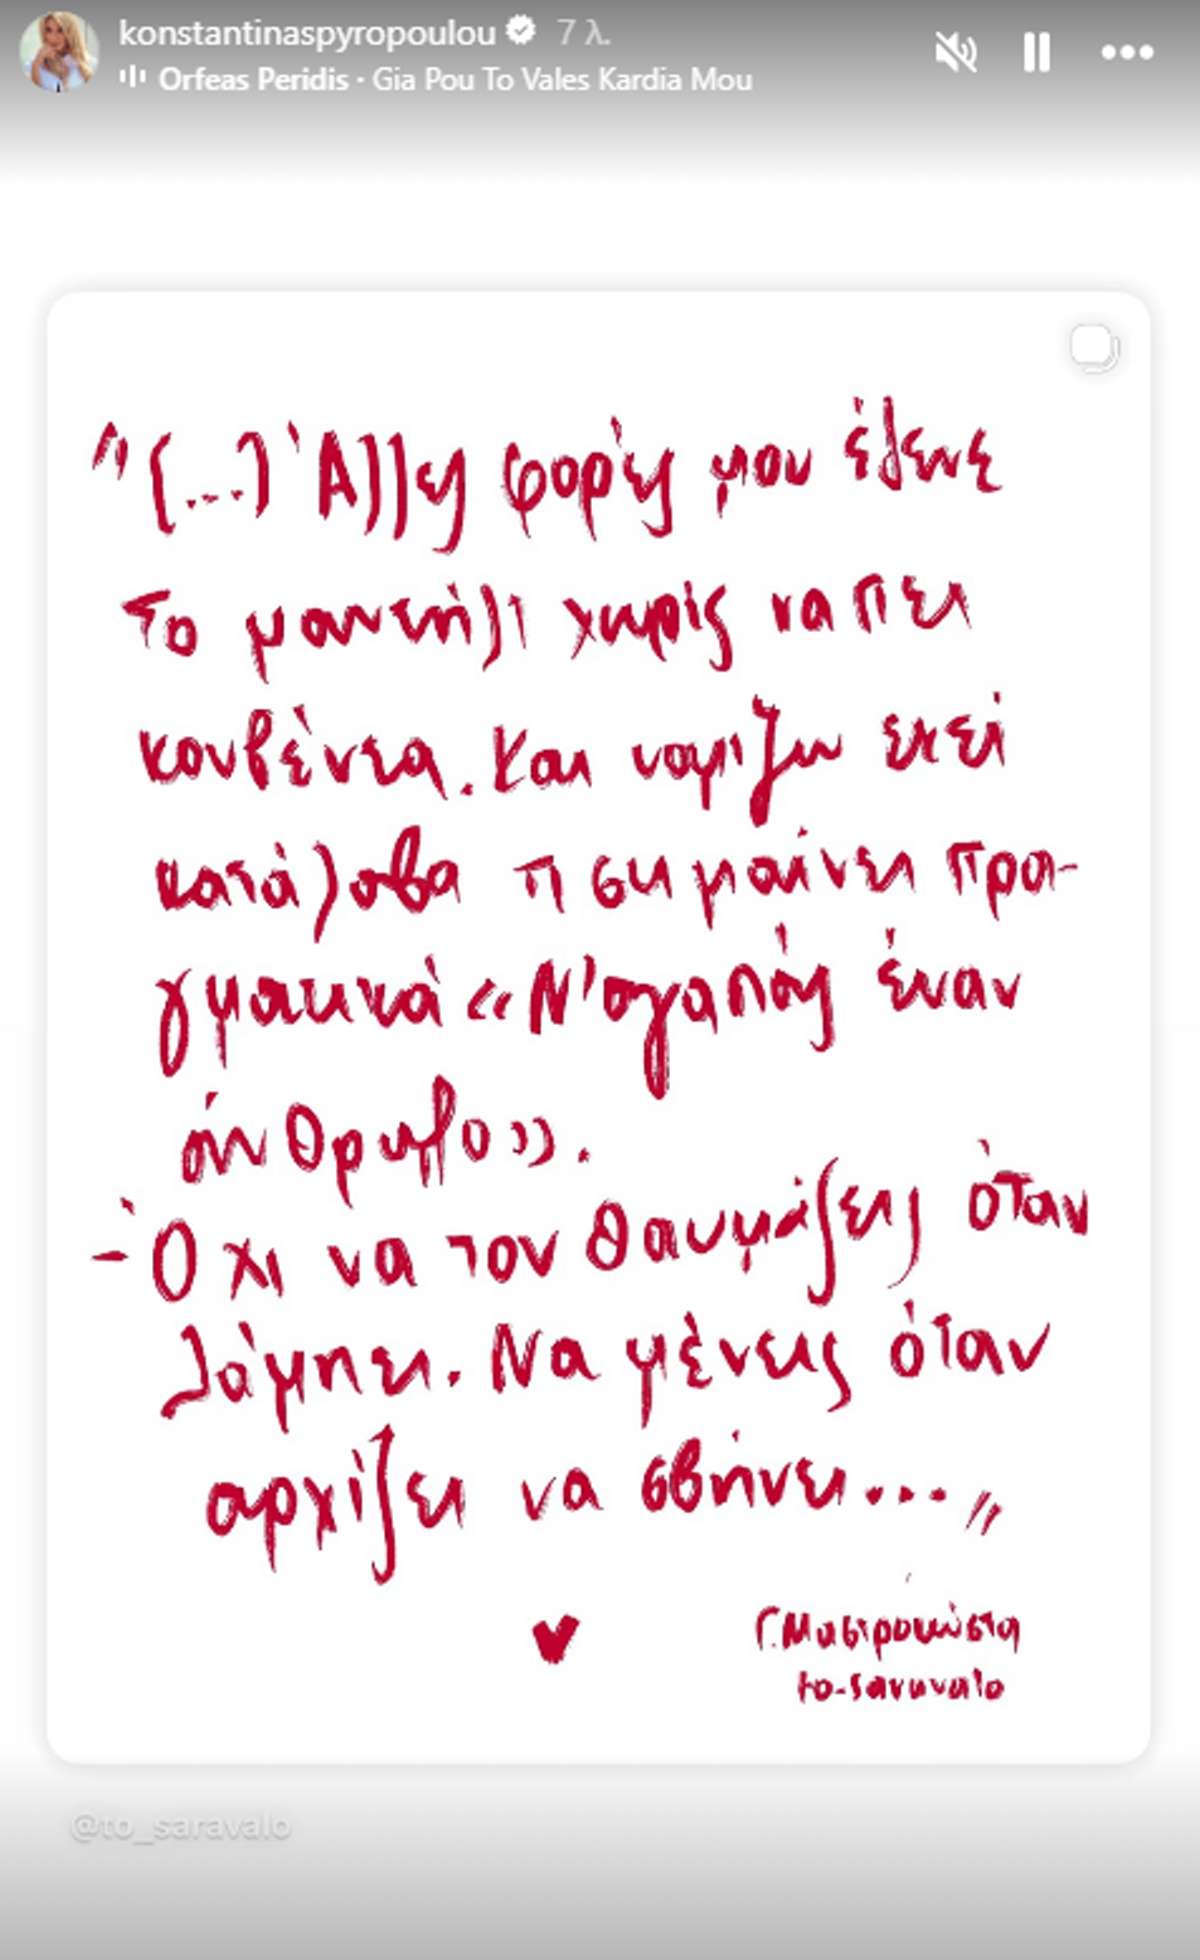 konstantinaspyropoulou 7 λ.
Orfeas Peridis · Gia Pou To Vales Kardia Mou
"(...) Άλλες φορές μου έδενε
το μαντήλι χωρίς να πει
κουβέντα. Και νομίζω εκεί
κατάλαβα τι σημαίνει πρα-
γματικά «Ν'αγαπάς έναν
άνθρωπο».
-Όχι να τον θαυμάζεις όταν
λάμπει. Να μένεις όταν
αρχίζει να σβήνει..."
Γ. Μαστροκώστα
to-saravalo
@to_saravalo